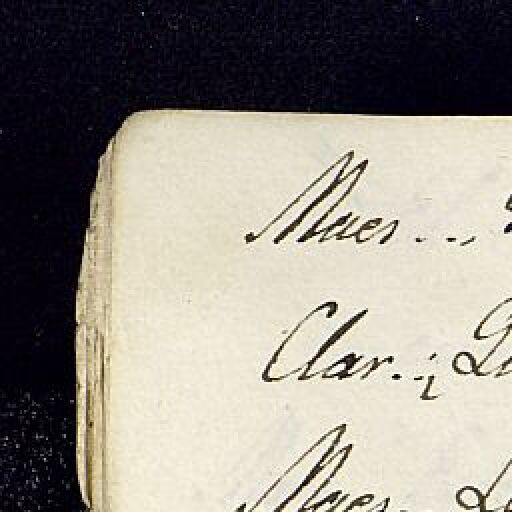 Maes...
Clar..
Maes.